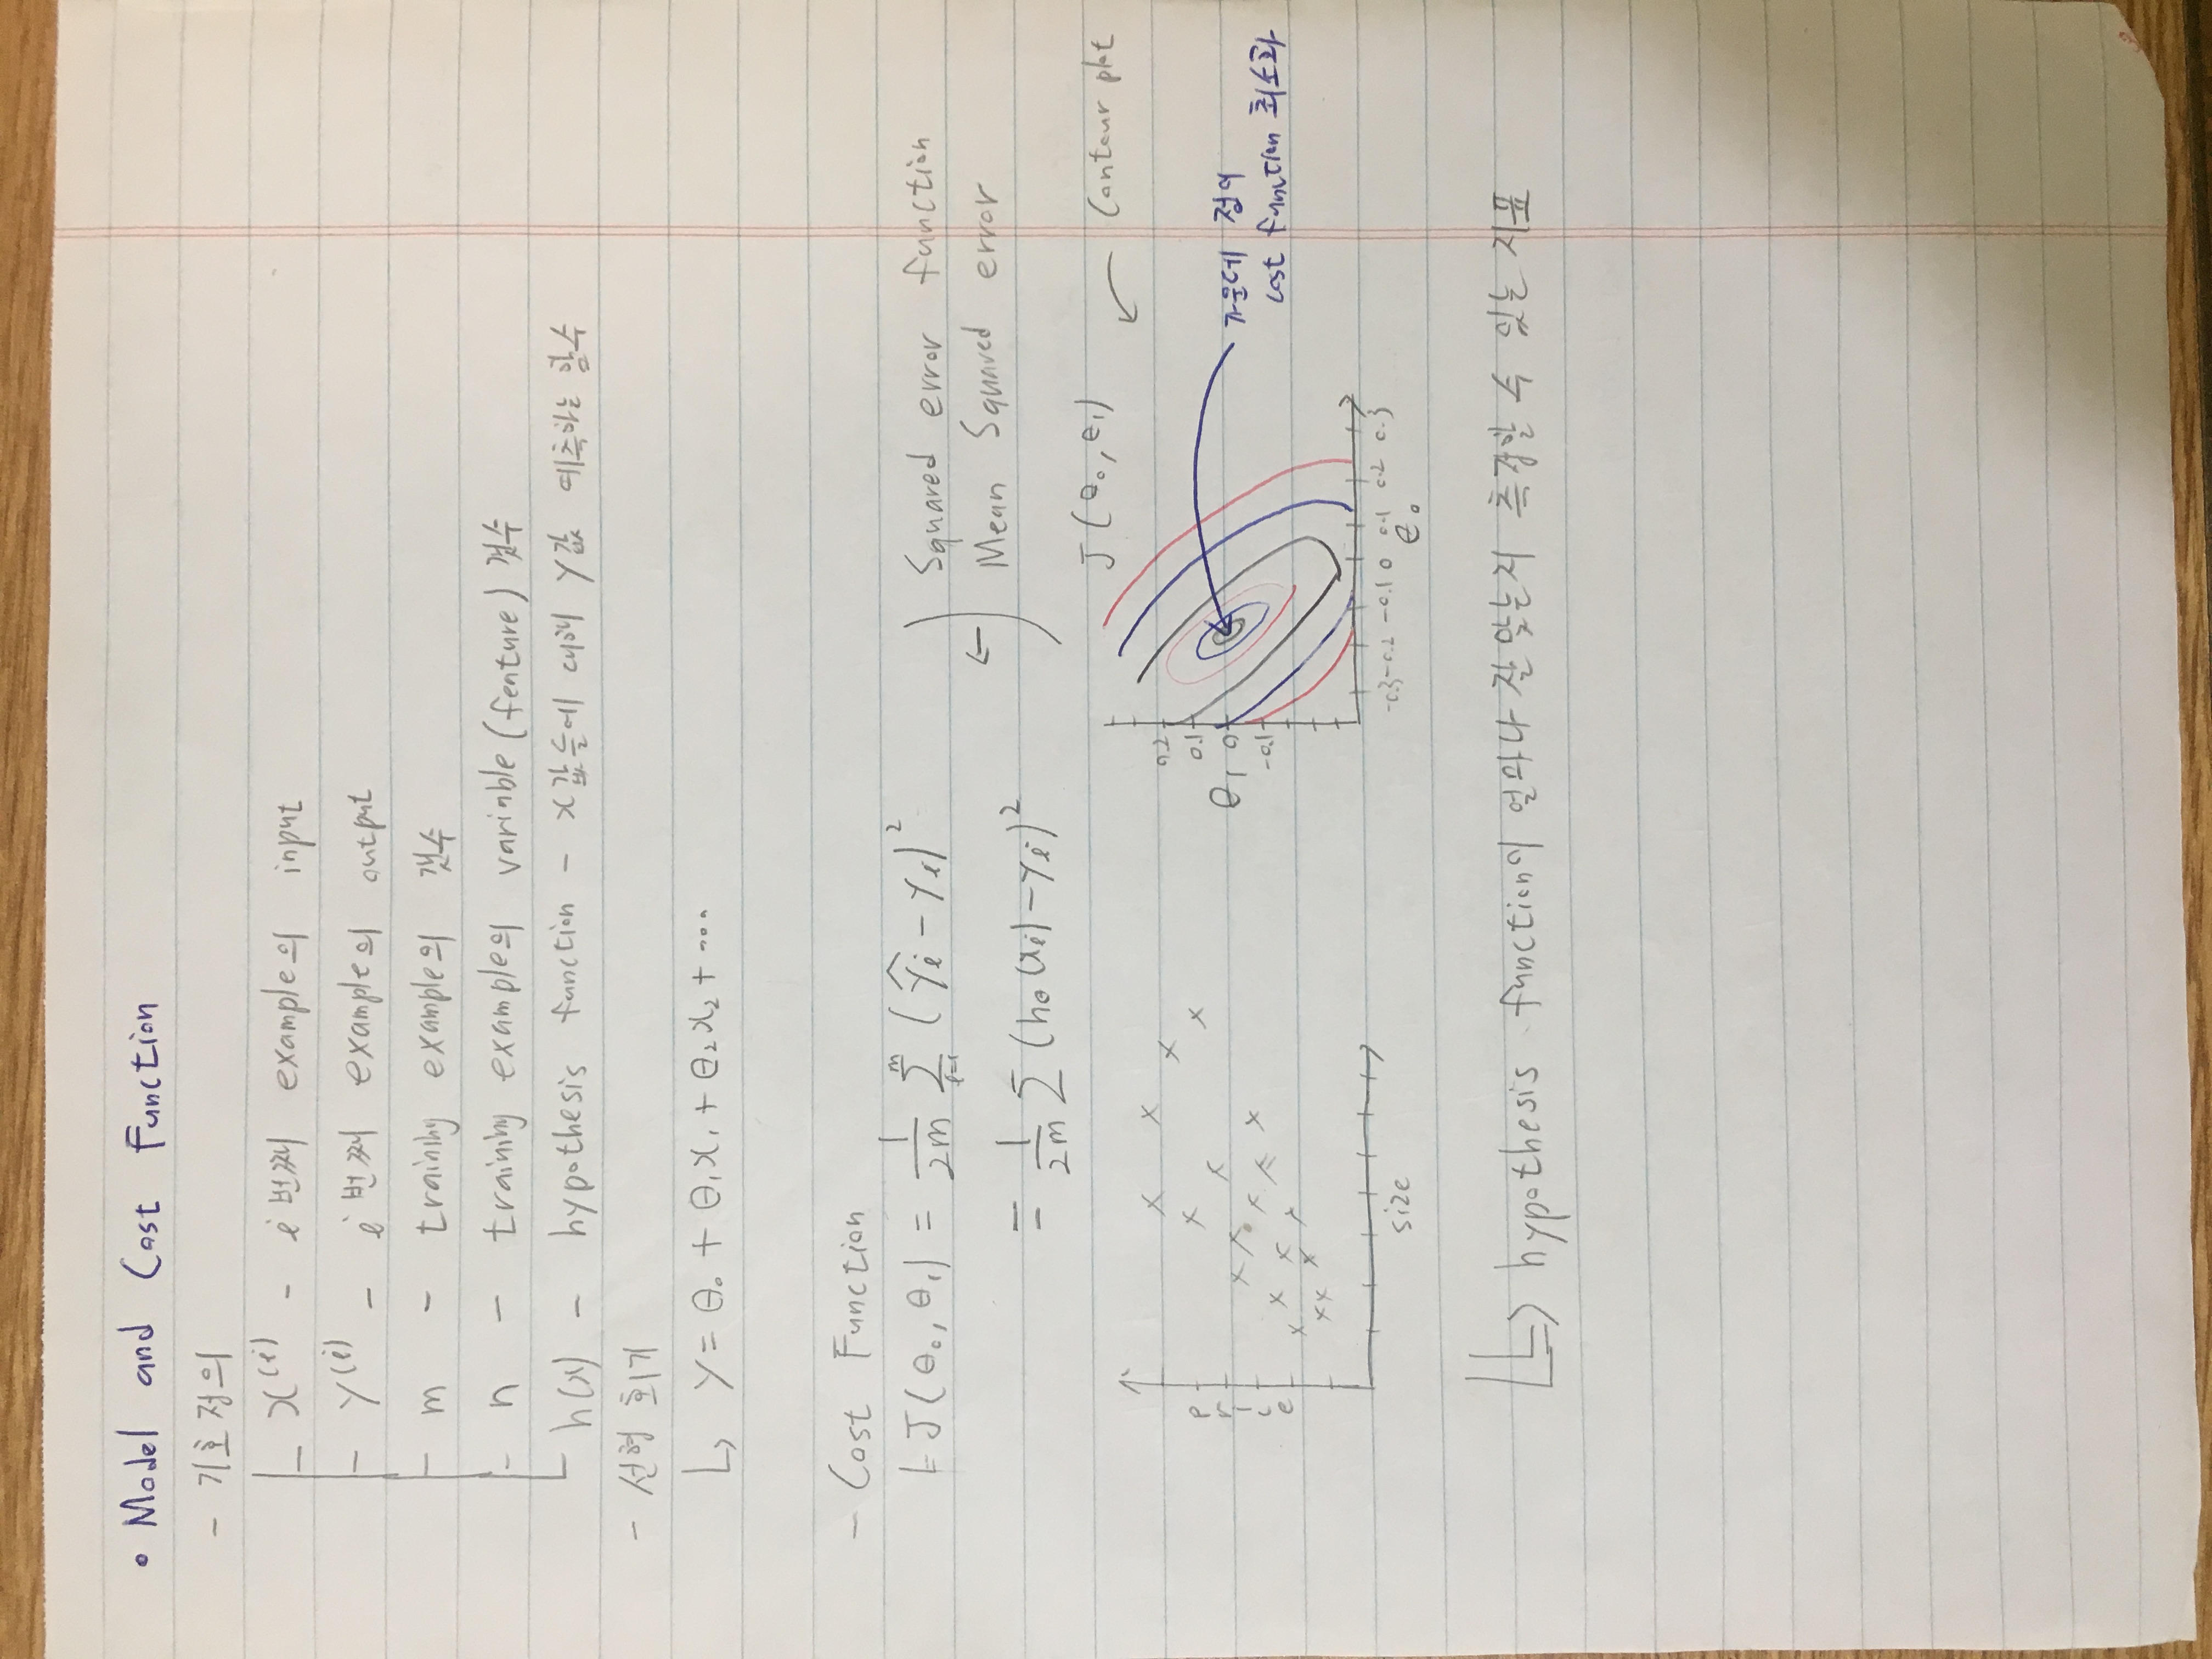 • Model and Cost Function
- 기호 정의
x^(i) - i 번째 example의 input
y^(i) - i 번째 example의 output
m - training example의 갯수
n - training example의 variable (feature) 갯수
h(x) - hypothesis function - x값들에 대해 y값 예측하는 함수
- 선형 회기
↳ y = θ₀ + θ₁x₁ + θ₂x₂ + ...
- Cost Function
J(θ₀, θ₁) = 1/2m Σ_{i=1}^{m} (ŷi - yi)²
= 1/2m Σ (hθ(xi) - yi)²
← Squared error function
Mean Squared error
price
size
J(θ₀, θ₁)
← Contour plot
0.2
0.1
θ₁ 0
-0.1
-0.3 -0.2 -0.1 0 0.1 0.2 0.3
θ₀
가운데 점이
cost function 최소화
↳ hypothesis function이 얼마나 잘 맞는지 측정할 수 있는 지표